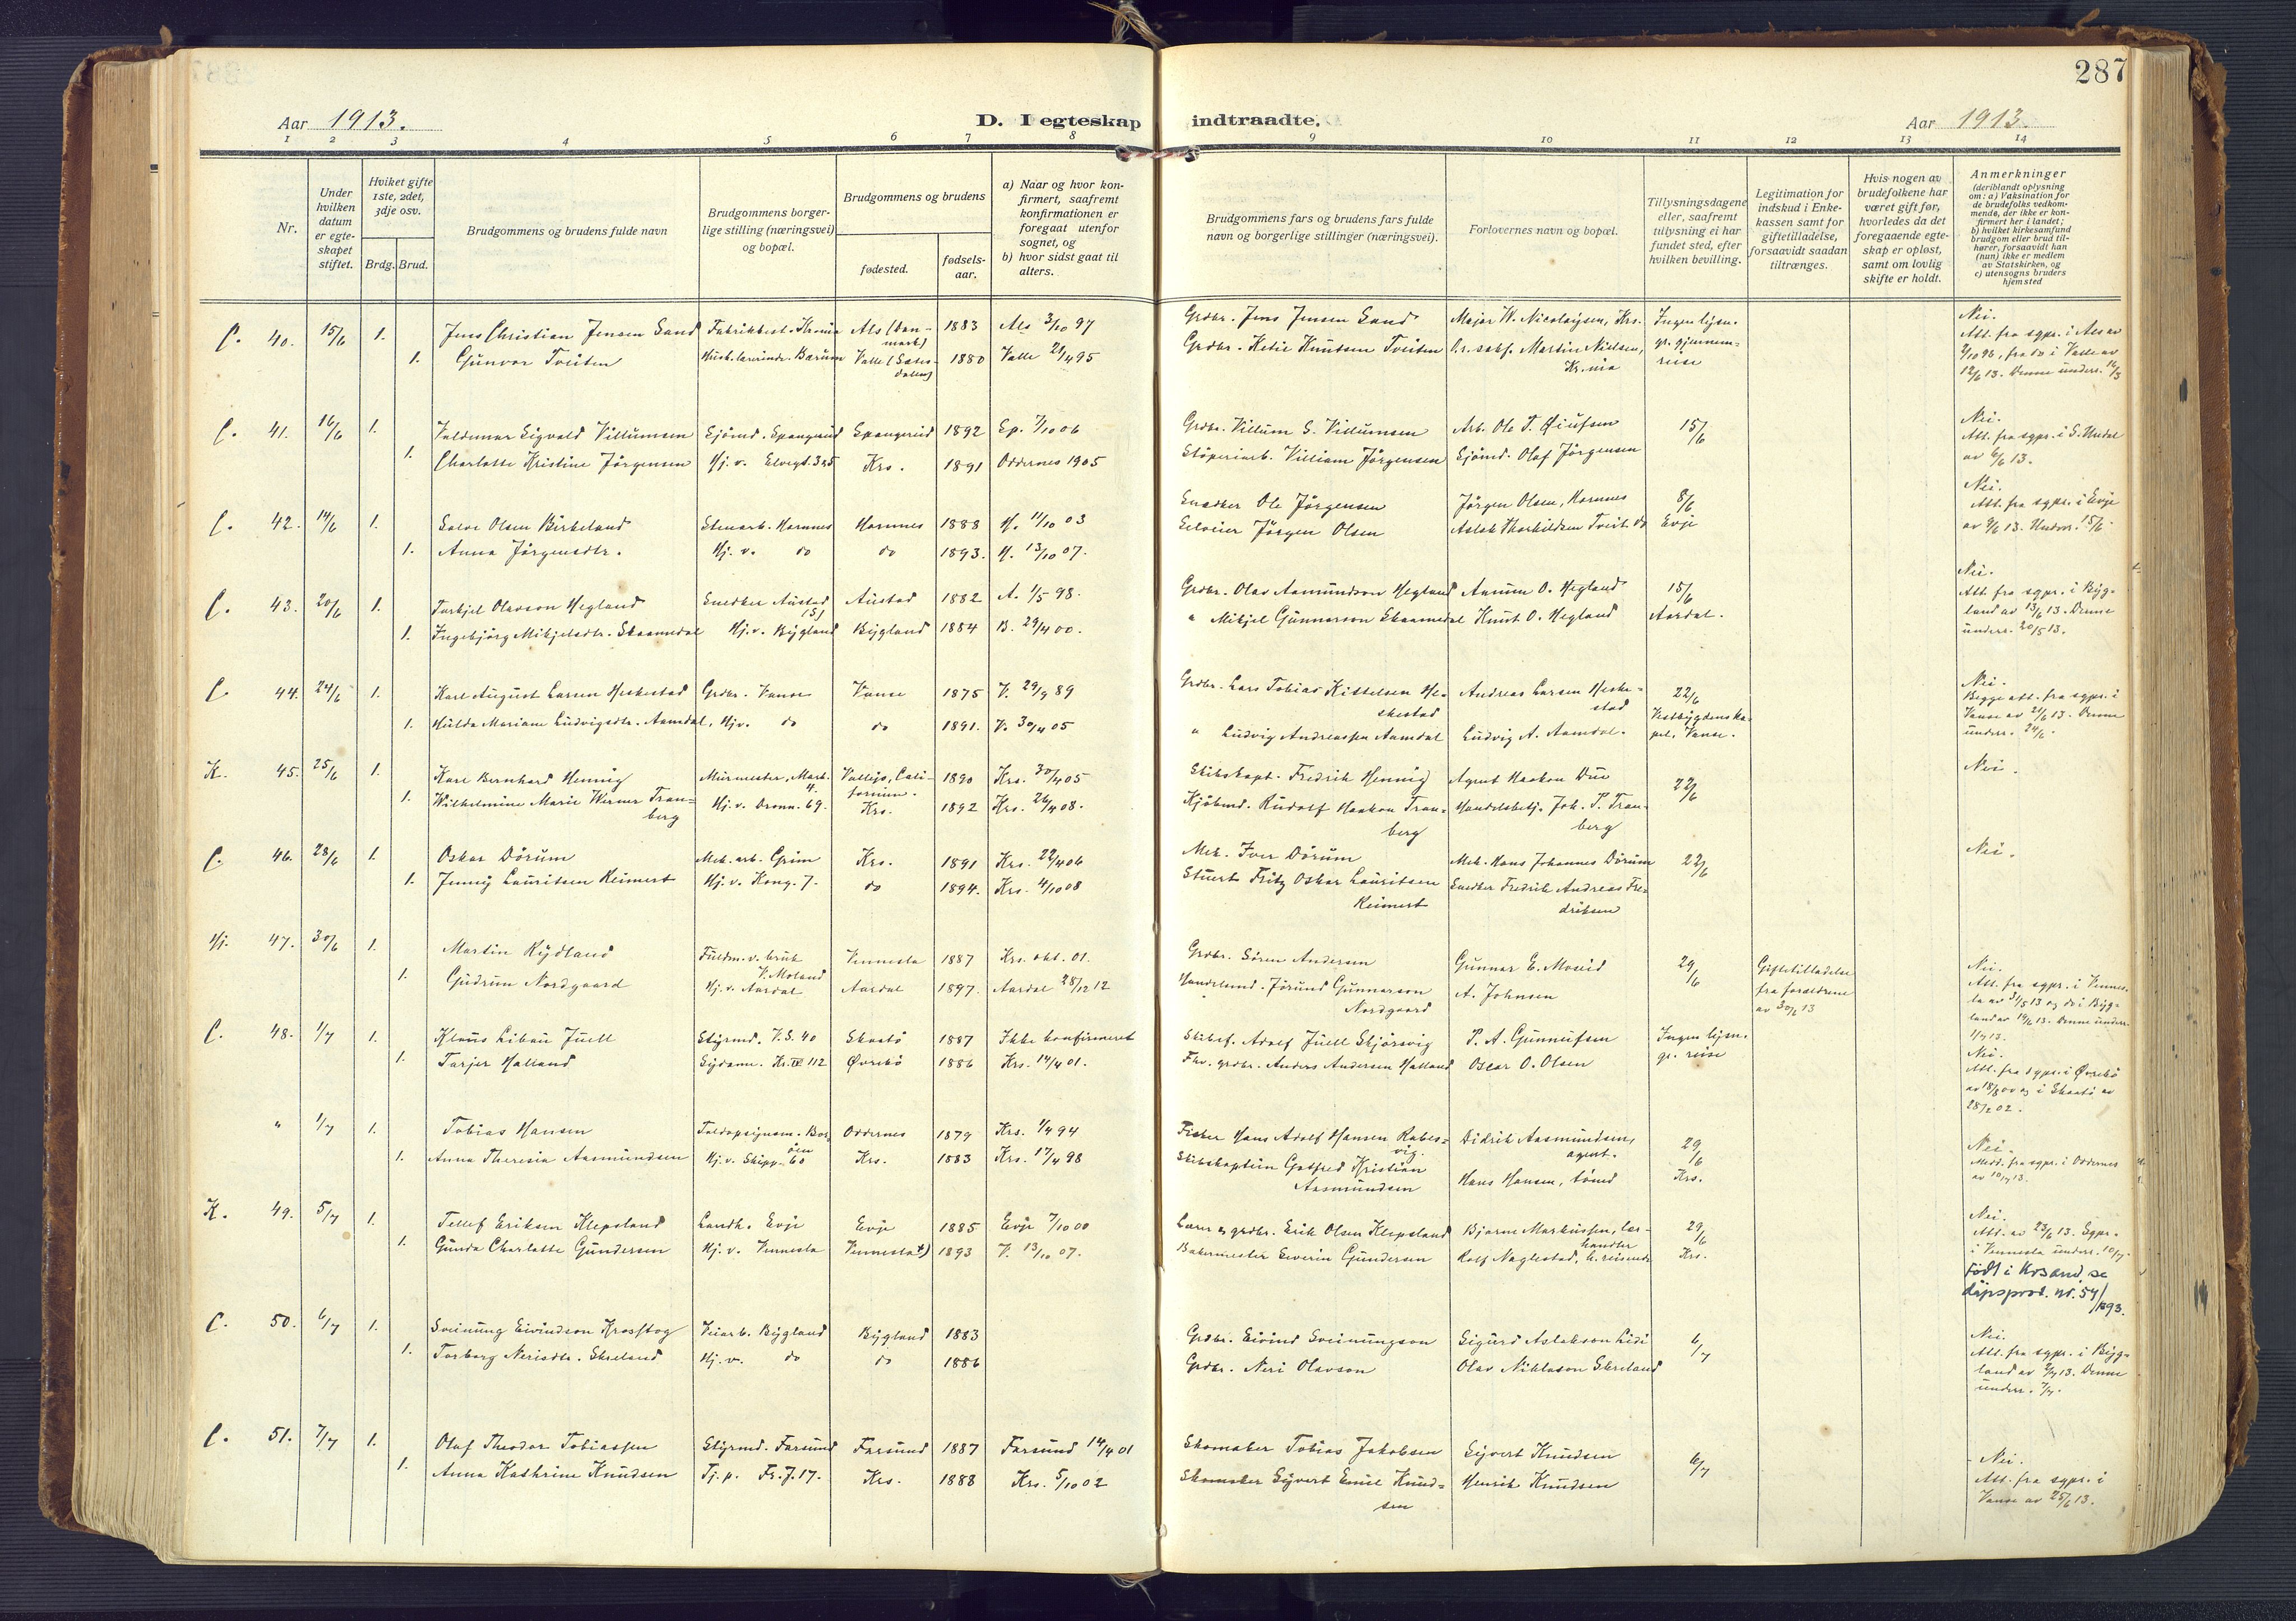 287
Aar 1913.
D. I egteskap indtraadte.
Aar 1913.
1 2 3 4 5 6 7 8 9 10 11 12 13 14
Nr.
Under hvilken datum er egteskapet stiftet.
Hviket gifte 1ste, 2det, 3dje osv.
Brdg. Brud.
Brudgommens og brudens fulde navn
Brudgommens borgerlige stilling (næringsvei) og bopæl.
Brudgommens og brudens
fødested.
fødselsaar.
a) Naar og hvor konfirmert, saafremt konfirmationen er foregaat utenfor sognet, og
b) hvor sidst gaat til alters.
Brudgommens fars og brudens fars fulde navn og borgerlige stillinger (næringsvei).
Forlovernes navn og bopæl.
Tillysningsdagene eller, saafremt tillysning ei har fundet sted, efter hvilken bevilling.
Legitimation for indskud i Enkekassen samt for giftetilladelse, forsaavidt saadan tiltrænges.
Hvis nogen av brudefolkene har været gift før, hvorledes da det foregaaende egteskap er opløst, samt om lovlig skifte er holdt.
Anmerkninger (deriblandt oplysning om: a) Vaksination for de brudefolks vedkommende, der ikke er konfirmert her i landet; b) hvilket kirkesamfund brudgom eller brud tilhører, forsaavidt han (hun) ikke er medlem av Statskirken, og c) utensogns bruders hjemsted
C. 40. 15/6 1. Jens Christian Jensen Sand Als (Danmark) 1883 Als 3/10 97 Grdbr. Jens Jensen Sand Major W. Nicolaysen, Krs. Ingen lysn. Nei.
1. Gunvor Tveiten Valle (Sætersdalen) 1880 Valle 21/4 95 Martin Nielsen, gr. gjennemreise Att. fra sgpr. i Als av
C. 41. 16/6 1. Valdemar Sigvald Villumsen Sjömd. Spangereid Spangereid 1892 Sp. 7/10 06 Grdbr. Villum S. Villumsen Arb. Ole T. 15/6 Nei.
1. Charlotte Kristine Jörgensen Hj. v. Elvegt. Krs. 1891 Oddernes 1905 Støperiarb. Villiam Jörgensen Sjömd. Olaf Jörgensen Att. fra sgpr. i S. Undal av 6/6 13.
C. 42. 14/6 1. Salve Olsen Birkeland Stenarb. Hornnes Hornnes 1888 H. 11/10 03 Snedker Ole Jörgensen Jörgen Olsen, Hornnes 8/6 Nei.
1. Anna Jörgensdtr. Hj. v. do do 1893. H. 13/10 07. Selveier Jörgen Olsen Aslak Thorkildsen Tveit do Evje Att. fra sgpr. i Evje
C. 43. 20/6 1. Torkjel Olavson Hegland Snedker Austad Austad 1882 A. 1/5 98. Grdbr. Olav Aamundson Hegland Aanund O. Hegland 15/6 Nei.
1. Ingebjörg Mikjelsdtr. Skaamedal Hj. v. Bygland Bygland 1884 B. 29/4 00. " Mikjel Gunnarson Skaamedal Knut O. Hegland Aardal. Att. fra sgpr. i Bygland av 13/6 13. Denne underr. 20/5 13.
C. 44. 24/6 1. Karl August Larsen Heskestad Grdbr. Vanse Vanse 1875 V. 29/9 89 Grdbr. Lars Tobias Kittelsen Heskestad Andreas Larsen Heskestad 22/6 Nei.
1. Hulda Mariane Ludvigsdtr. Aamdal, Hjv. do do 1891. V. 30/4 05 " Ludvig Andreassen Aamdal Ludvig A. Aamdal. Vestbygdens kapel, Vanse. Begge att. fra sgpr. i Vanse av 21/6 13. Denne underr. 24/6.
K. 45. 25/6 1. Karl Bernhard Hennig Murmester, Mark. 4. Vallejo, California. 1890 Krs. 30/4 05 Skibskapt. Fredrik Hennig Agent Haakon Due 22/6 Nei.
1. Wilhelmine Marie Werner Tranberg Hj. v. Dronn. 69. Krs. 1892 Krs. 26/4 08. Kjöbmd. Rudolf Haakon Tranberg Handelsbetj. Joh. P. Tranberg
C. 46. 28/6 1. Oskar Dörum Mek. arb. Grim Krs. 1891 Krs. 22/4 06 Mek. Iver Dörum Mek. Hans Johannes Dörum 22/6 Nei.
1. Jenny Lauritsen Reimert Hj. v. Kong. 7. do 1894. Krs. 4/10 08 Stuert Fritz Oskar Lauritsen Reimert Snedker Fredrik Andreas Fredriksen
Hj. 47. 30/6 1. Martin Rydland Fuldm. v. bruk V. Moland Vennesla 1887 Krs. okt. 01. Grdbr. Sören Andersen Gunnar E. Moseid 29/6 Giftetilladelse Nei.
1. Gudrun Nordgaard Hj. v. Aardal Aardal 1897. Aardal 28/12 12 Handelsmd. Jörund Gunnarson Nordgaard A. Johnsen fra foraldrene av 30/6 13 Att. fra sgpr. i Vennesla av 31/5 13 og do i Bygland av 14/6 13. Denne underr. 1/7 13.
C. 48. 1/7 1. Klaus Libau Juell Styrmd. V.S. 40 Skaatö 1887 Ikke konfirmeret Skibsf. Adolf Juell Skjörsvig P. A. Gunnufsen Ingen lysn. Nei.
1. Tarjer Halland Sydame. Kr. IV 112 Øvrebö 1886 Krs. 14/4 01. Fhv. grdbr. Anders Andersen Halland Oscar O. Olsen gr. reise Att. fra sgpr. i Øvrebö av 18/8 00 og i Skaatö av 28/2 02.
" 1/7 1. Tobias Hansen Toldopsynsm. Oddernes 1879 Krs. 1/4 94 Fisker Hans Adolf Hansen Rabesvig. Didrik Aasmundsen, agent. 29/6 Nei.
1. Anna Theresia Aasmundsen Hj. v. Skipp. 60 Krs. 1883 Krs. 17/4 98 Skibskaptein Gotfred Kristian Aasmundsen Hans Hansen, tömd Krs. Medd. fra sgpr. i Oddernes av 10/7 13.
K. 49. 5/7 1. Tellef Eriksen Klepsland Landh. Evje Evje 1885 Evje 7/10 00 Lærer og grdbr. Erik Olsen Klepsland Bjarne Markussen, lærhandler 29/6 Nei.
1. Gunda Charlotte Gundersen Hj. v. Vennesla Vennesla +) 1893 V. 13/10 07. Bakermester Severin Gundersen Rolf Naglestad, h. reisende Krs. Att. av 23/6 13. Sgpr. i Vennesla underr. 10/7.
Födt i Krsand, se dåpsprot. nr. 54/1893.
C. 50. 6/7 1. Sveinung Eivindson Krossbog Veiarb. Bygland Bygland 1883 Grdbr. Eivind Sveinungson Sigurd Aslakson Lidi 6/7 Nei.
1. Torborg Nerisdtr. Skreland Hj. v. do do 1886 Grdbr. Neri Olavson Olav Niklason Skreland Att. fra sgpr. i Bygland av 2/7 13. Denne underr. 7/7.
C. 51. 7/7 1. Olaf Theodor Tobiassen Styrmd. Farsund Farsund 1887 Farsund 14/4 01 Skomaker Tobias Jakobsen Sivert Knudsen 6/7 Nei.
1. Anna Kathrine Knudsen Tj. p. Fr. J. 17. Krs. 1888 Krs. 5/10 02 Skomaker Syvert Emil Knudsen Henrik Knudsen Att. fra sgpr. i Vanse av 25/6 13.